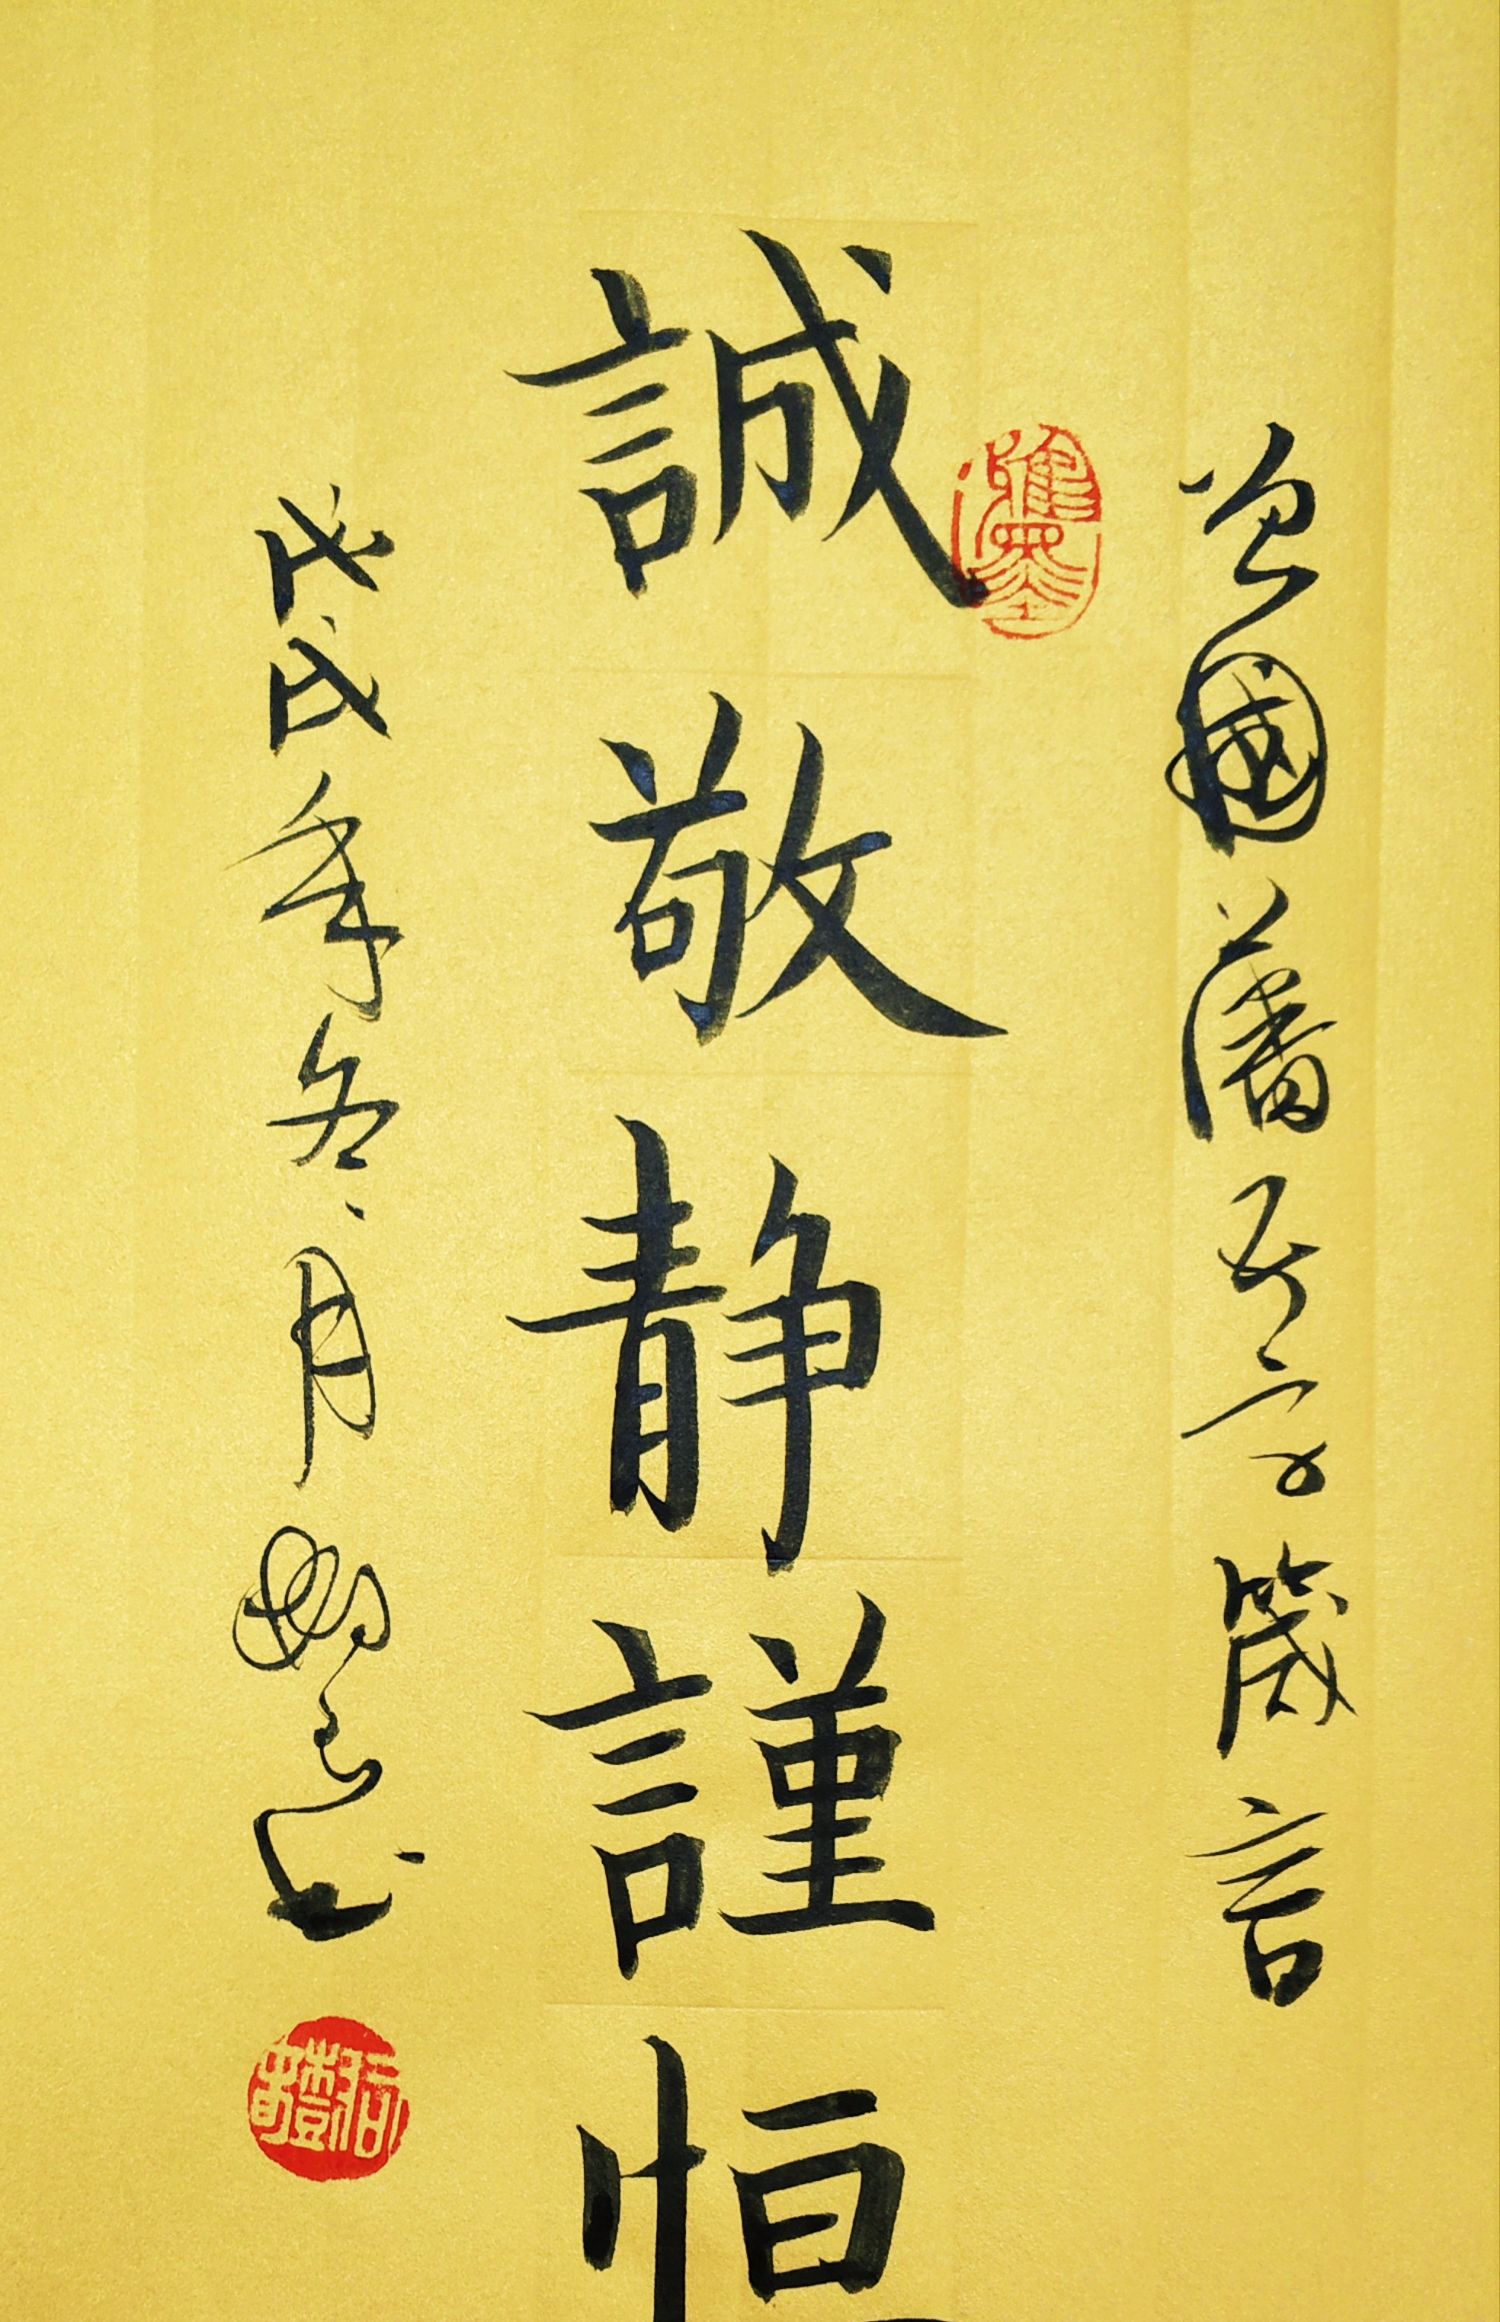 曾國藩五字箴言
誠敬静謹恒
戊戌年冬月